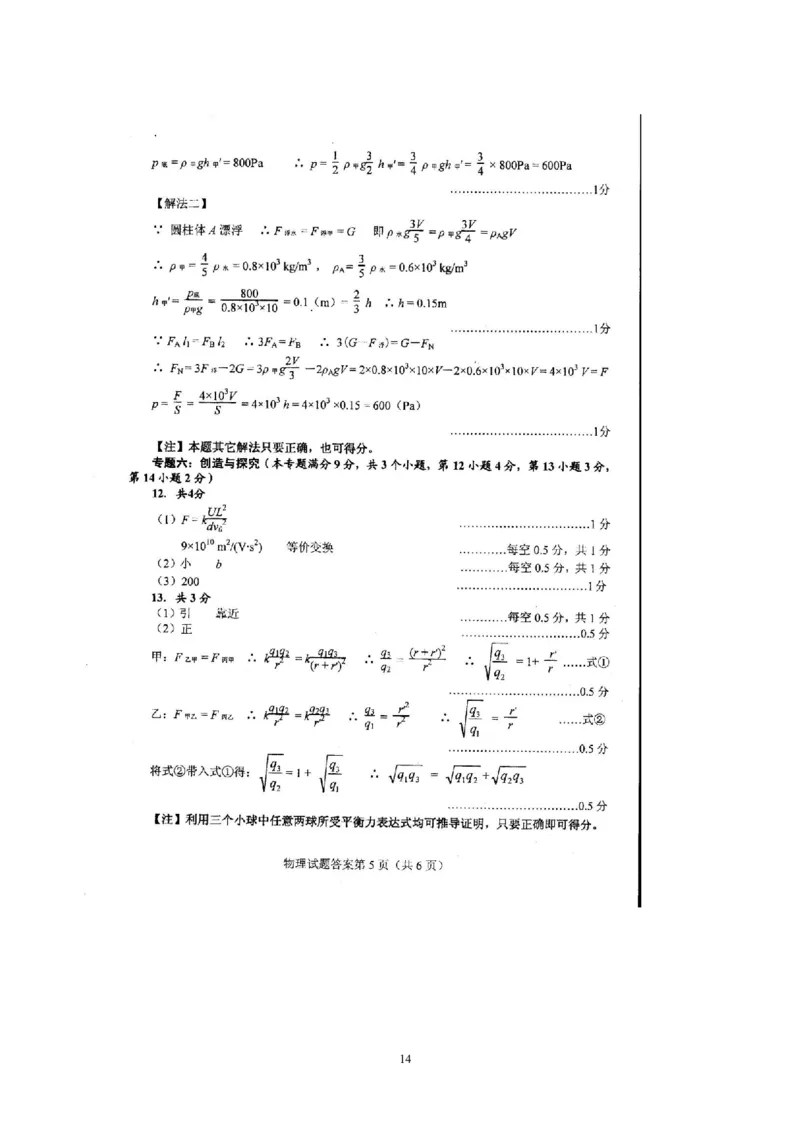 p瓶=ρ甲gh甲′=800Pa ∴ p=1/2 ρ甲g 3/2 h甲′=3/4 ρ甲gh甲′=3/4×800Pa=600Pa
……………………………1分
【解法二】
∵ 圆柱体A漂浮 ∴F浮水=F浮甲=G 即ρ水g 3V/5=ρ甲g 3V/4=ρAgV
∴ρ甲=4/5 ρ水=0.8×10³kg/m³，ρA=3/5 ρ水=0.6×10³kg/m³
h甲′=p瓶/ρ甲g=800/0.8×10³×10=0.1（m）=2/3 h ∴h=0.15m
……………………………1分
∵FA l1=FB l2 ∴3FA=FB ∴3(G－F浮)=G－FN
∴FN=3F浮－2G=3ρ甲g 2V/3－2ρAgV=2×0.8×10³×10×V－2×0.6×10³×10×V=4×10³V=F
p=F/S=4×10³V/S=4×10³h=4×10³×0.15=600（Pa）
……………………………1分
【注】本题其它解法只要正确，也可得分。
专题六：创造与探究（本专题满分9分，共3个小题，第12小题4分，第13小题3分，
第14小题2分）
12. 共4分
（1）F=k UL²/dv₀² ……………………………1分
9×10¹⁰m²/(V·s²) 等价变换 …………每空0.5分，共1分
（2）小 b …………每空0.5分，共1分
（3）200 ……………………………1分
13. 共3分
（1）引 靠近 …………每空0.5分，共1分
（2）正 ……………………………0.5分
甲：F乙甲=F丙甲 ∴k q1q2/r²=k q1q3/(r+r′)² ∴q3/q2=(r+r′)²/r² ∴√(q3/q2)=1+r′/r ……式①
……………………………0.5分
乙：F甲乙=F丙乙 ∴k q1q2/r²=k q2q3/r′² ∴q3/q1=r′²/r² ∴√(q3/q1)=r′/r ……式②
……………………………0.5分
将式②带入式①得：√(q3/q2)=1+√(q3/q1) ∴√(q1q3)=√(q1q2)+√(q2q3)
……………………………0.5分
【注】利用三个小球中任意两球所受平衡力表达式均可推导证明，只要正确即可得分。
物理试题答案第5页（共6页）
14